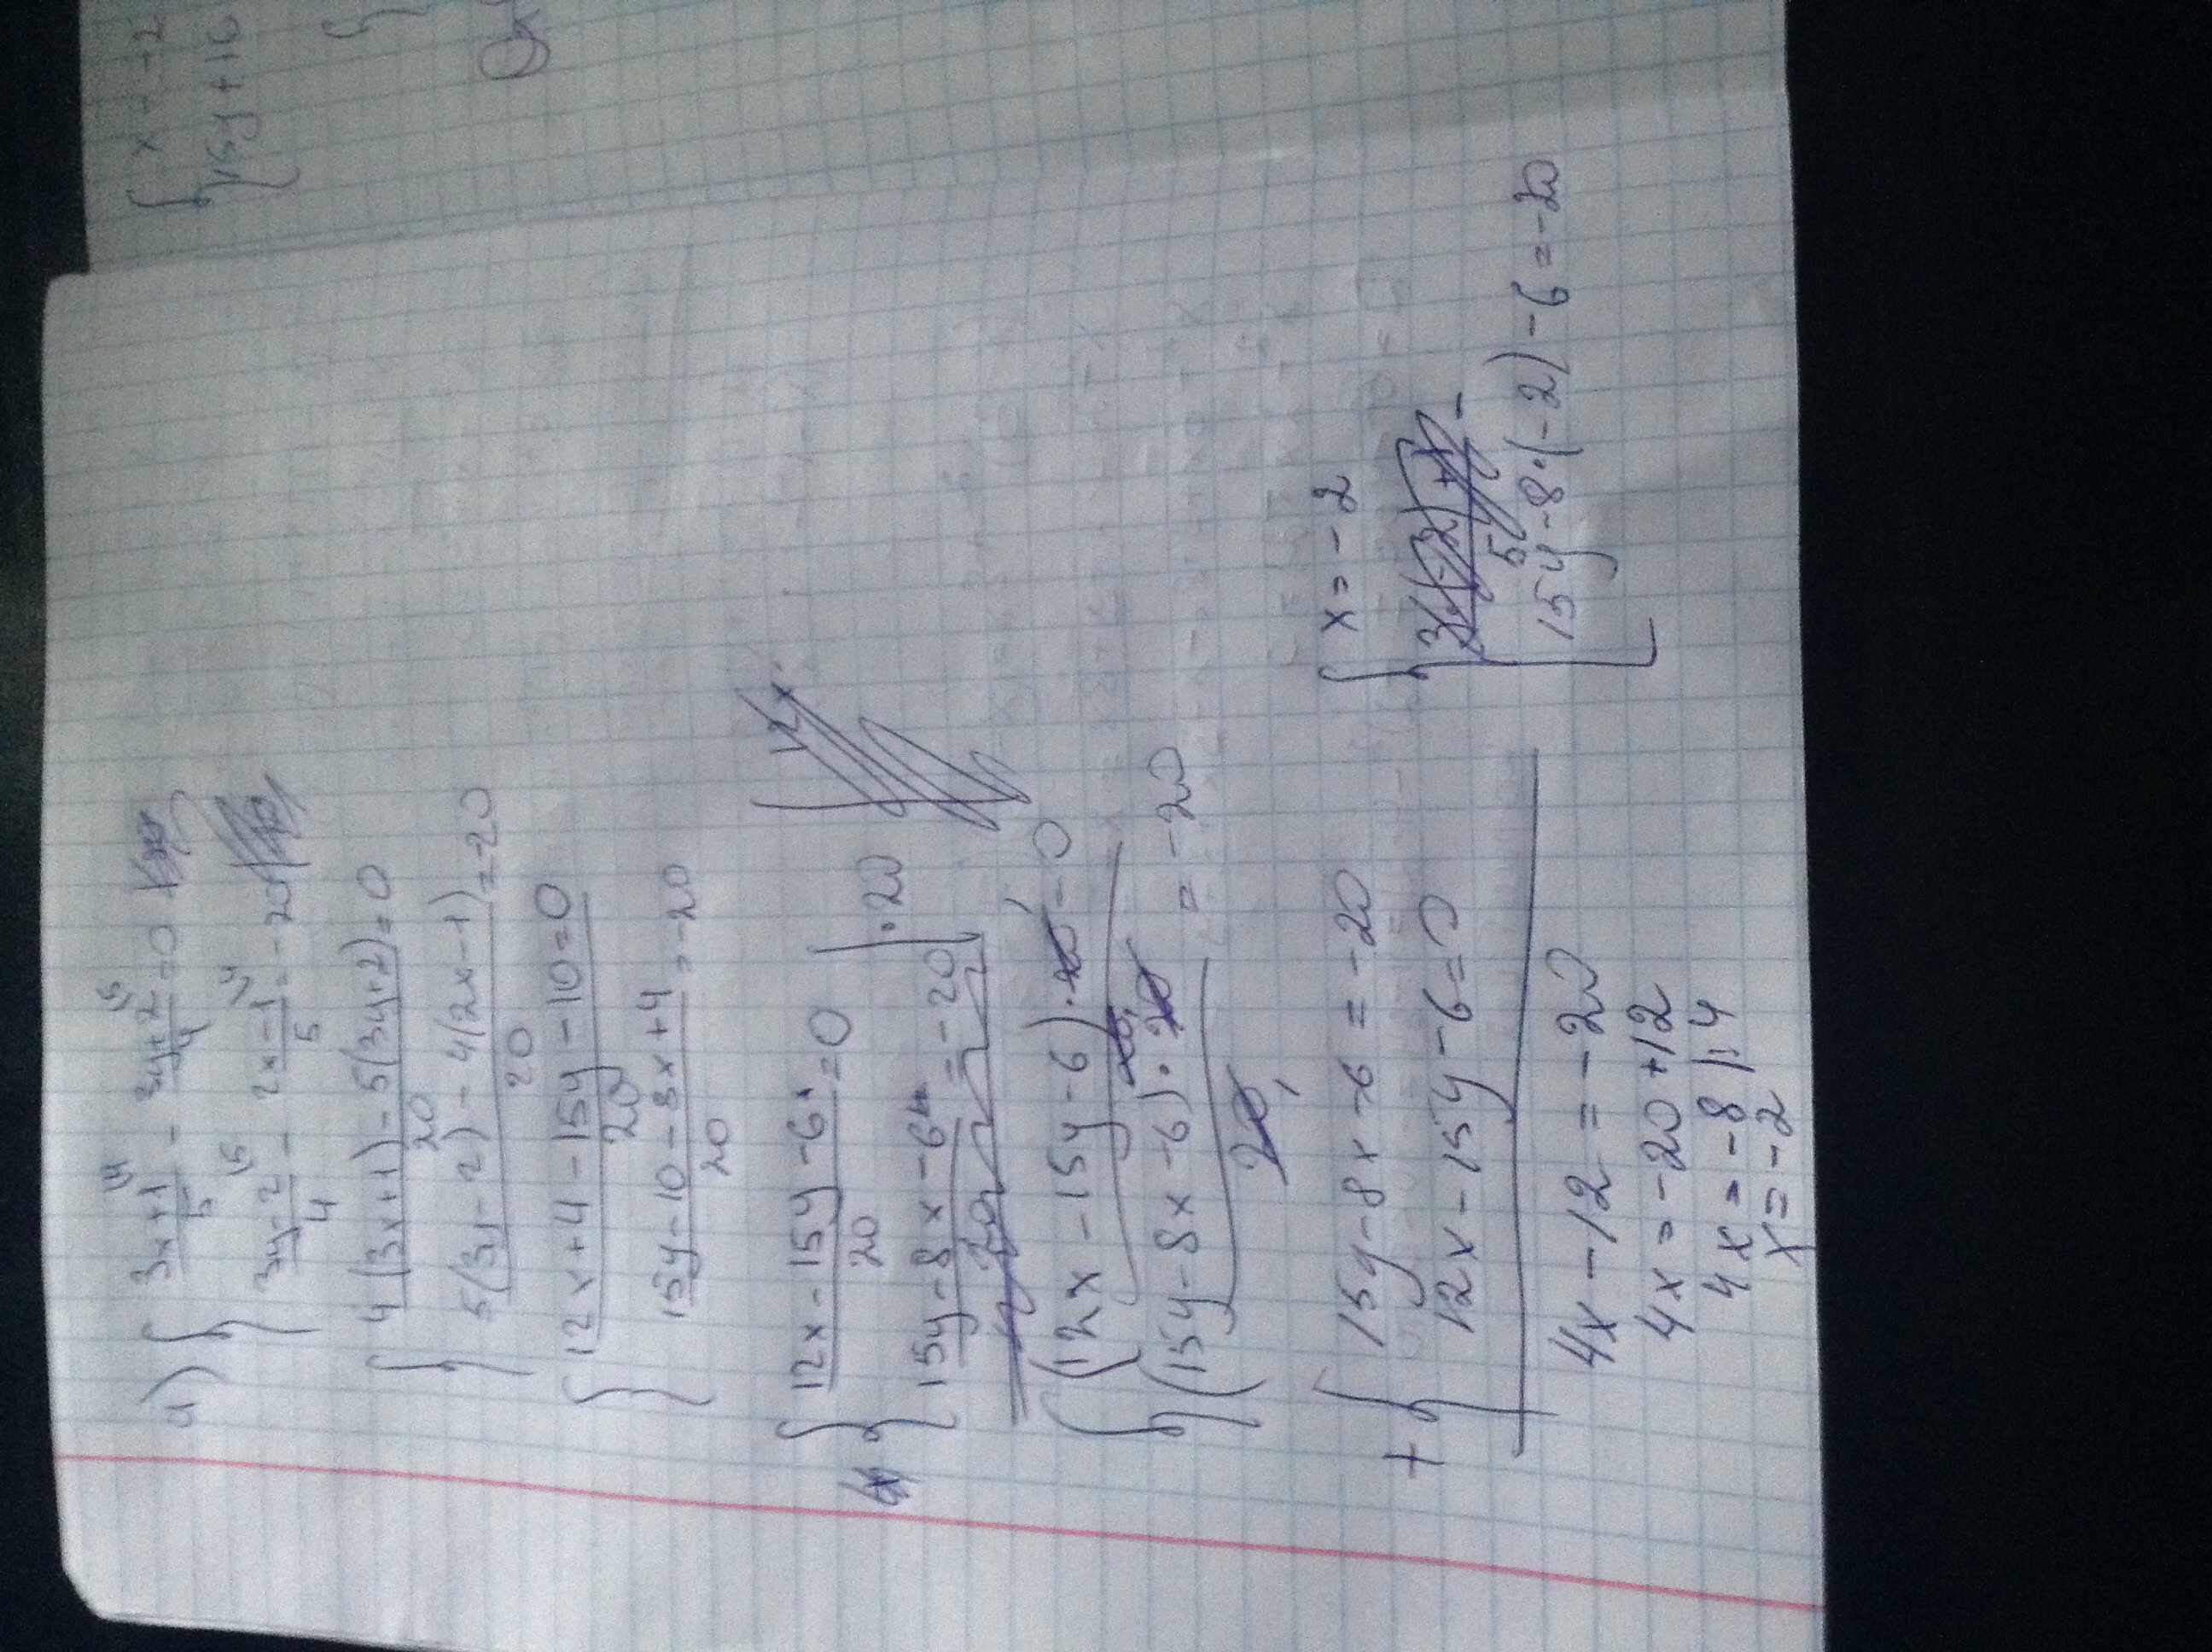 4) { (3x+1)/5 - (3y+2)/4 = 0
(3y-2)/4 - (2x-1)/5 = -20
{ (4(3x+1)-5(3y+2))/20 = 0
(5(3y-2)-4(2x-1))/20 = -20
{ (12x+4-15y-10)/20 = 0
(15y-10-8x+4)/20 = -20
{ (12x-15y-6)/20 = 0
(15y-8x-6)/20 = -20 | ·20
{ (12x-15y-6)·20 = 0
20
{ (15y-8x-6)·20 = -20
20
+ { 15y-8x-6 = -20
12x-15y-6=0
4x-12=-20
4x=-20+12
4x=-8 |:4
x=-2
{ x=-2
15y-8·(-2)-6=-20
{ x=-2
15y+16